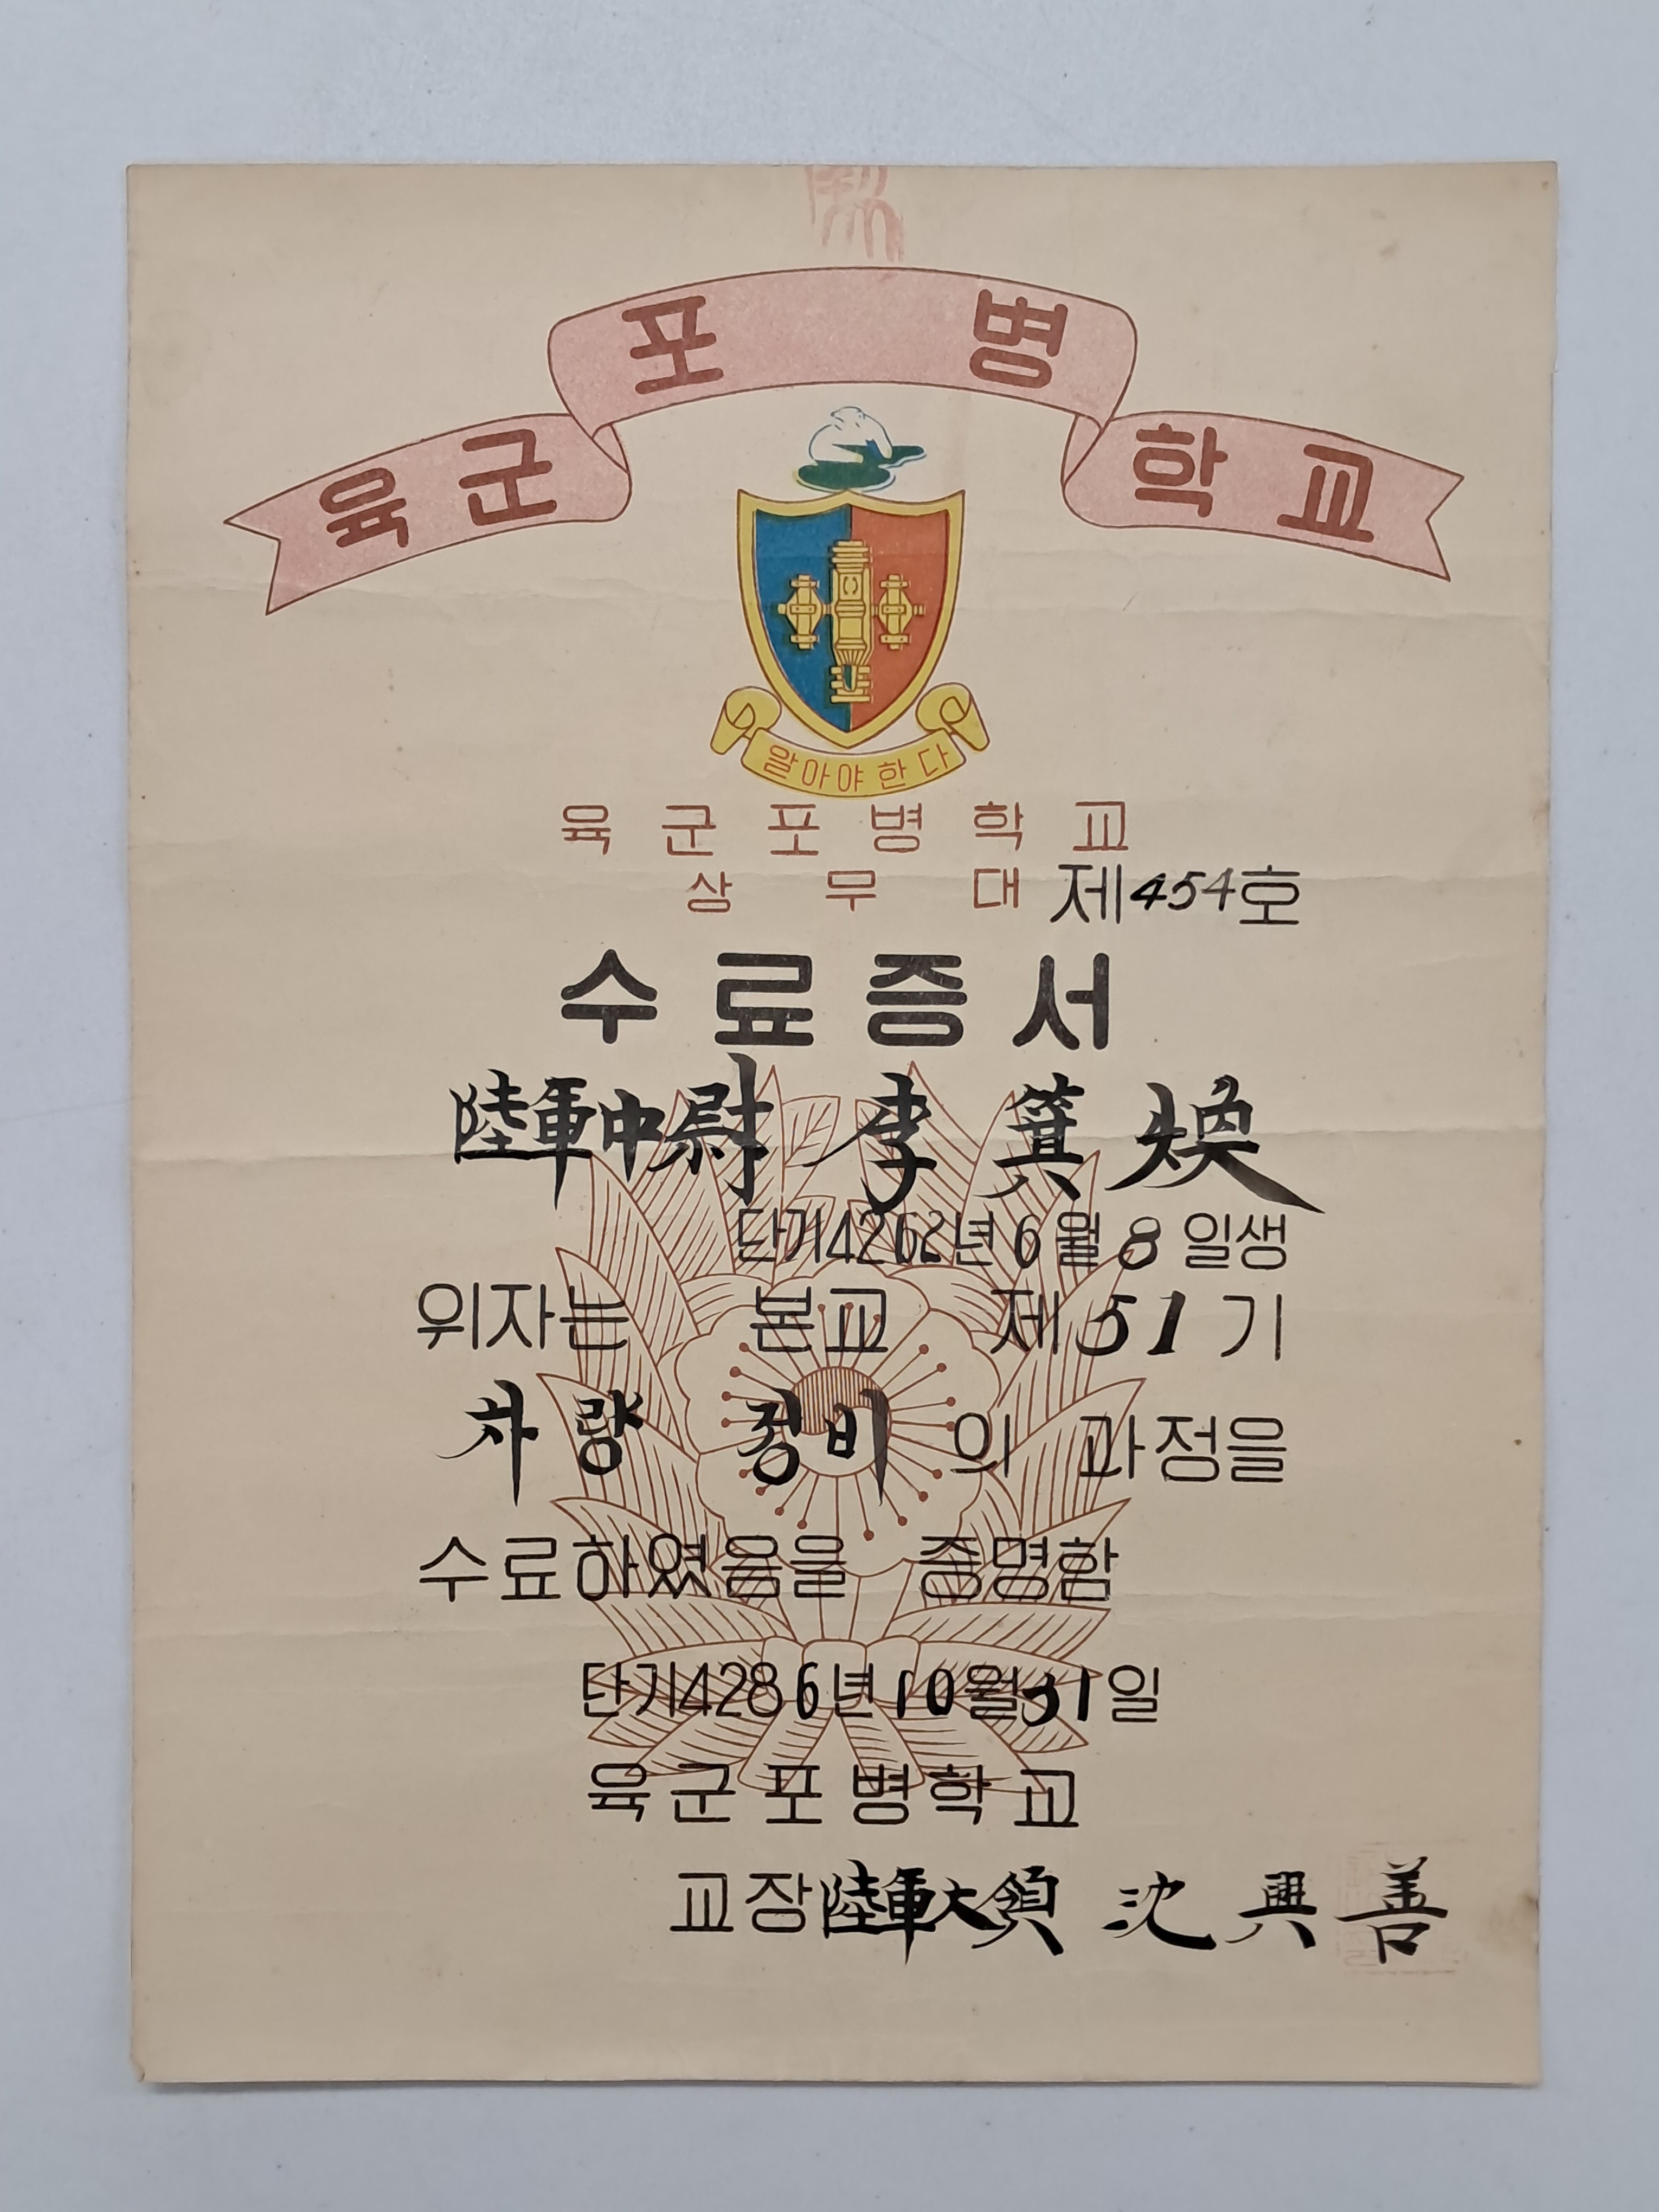 육군 포병 학교
알아야한다
육군포병학교
상무대 제454호
수료증서
陸軍中尉 李箕煥
단기4262년6월8일생
위자는 본교 제51기
차량 정비의 과정을
수료하였음을 증명함
단기4286년10월31일
육군포병학교
교장陸軍大領 沈興善